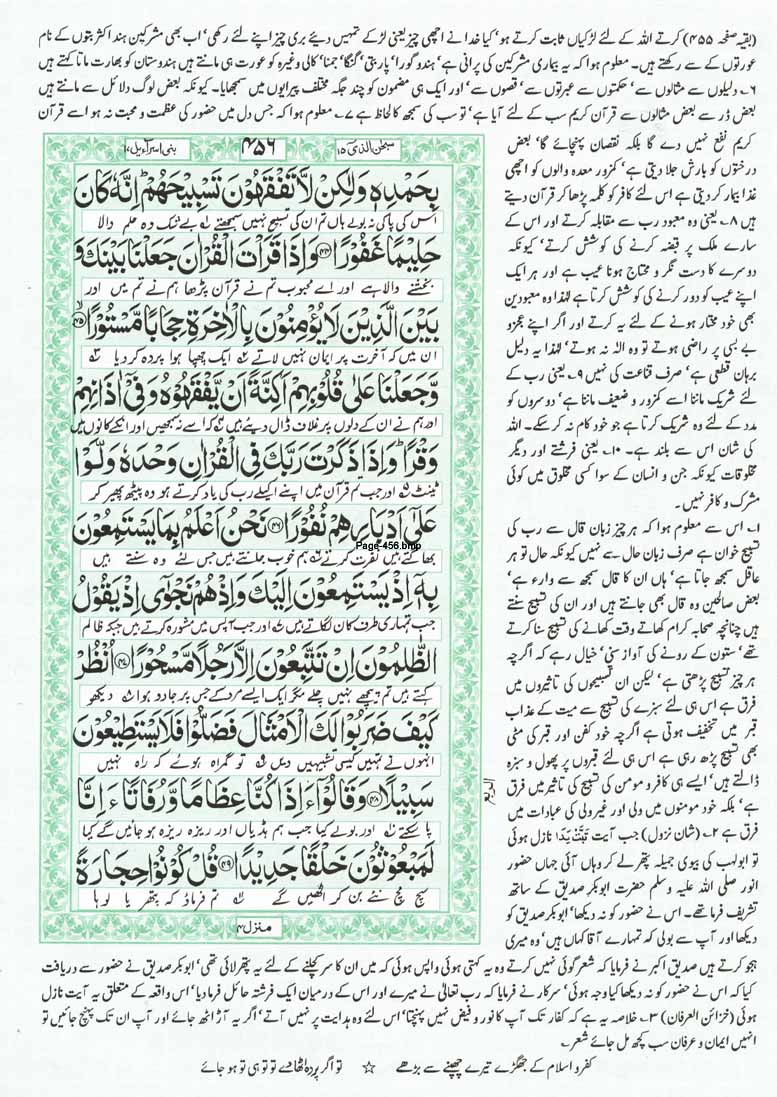 (بقیہ صفحہ ۴۵۵) کرتے اللہ کے لئے لڑکیاں ثابت کرتے ہو، کیا خدا نے اچھی چیز یعنی لڑکے تمہیں دیئے بری چیز اپنے لئے رکھی، اب بھی مشرکین ہند اکثر بتوں کے نام
عورتوں کے سے رکھتے ہیں۔ معلوم ہوا کہ یہ بیماری مشرکین کی پرانی ہے، ہندو گورا، پاربتی، گنگا، جمنا، کالی وغیرہ کو عورت ہی مانتے ہیں ہندوستان کو بھارت ماتا کہتے ہیں
۶۔ دلیلوں سے مثالوں سے، حکمتوں سے عبرتوں سے، قصوں سے، اور ایک ہی مضمون کو چند جگہ مختلف پیرایوں میں سمجھایا۔ کیونکہ بعض لوگ دلائل سے مانتے ہیں
بعض ڈر سے بعض مثالوں سے قرآن کریم سب کے لئے آیا ہے، تو سب کی سمجھ کا لحاظ ہے ۷۔ معلوم ہوا کہ جس دل میں حضور کی عظمت و محبت نہ ہو اسے قرآن
کریم نفع نہیں دے گا بلکہ نقصان پہنچائے گا، بعض
درختوں کو بارش جلا دیتی ہے، کمزور معدہ والوں کو اچھی
غذا بیمار کر دیتی ہے اس لئے کافر کو کلمہ پڑھا کر قرآن دیتے
ہیں ۸۔ یعنی وہ معبود رب سے مقابلہ کرتے اور اس کے
سارے ملک پر قبضہ کرنے کی کوشش کرتے، کیونکہ
دوسرے کا دست نگر و محتاج ہونا عیب ہے اور ہر ایک
اپنے عیب کو دور کرنے کی کوشش کرتا ہے لہٰذا وہ معبودین
بھی خود مختار ہونے کے لئے یہ کرتے اور اگر اپنے عجز و
بے بسی پر راضی ہوتے تو وہ الٰہ نہ ہوتے، لہٰذا یہ دلیل
برہان قطعی ہے، صرف قناعت کی نہیں ۹۔ یعنی رب کے
لئے شریک ماننا اسے کمزور و ضعیف ماننا ہے، دوسروں کو
مدد کے لئے وہ شریک کرتا ہے جو خود کام نہ کر سکے۔ اللہ
کی شان اس سے بلند ہے۔ ۱۰۔ یعنی فرشتے اور دیگر
مخلوقات کیونکہ جن و انسان کے سوا کسی مخلوق میں کوئی
مشرک و کافر نہیں۔
۱۔ اس سے معلوم ہوا کہ ہر چیز زبان قال سے رب کی
تسبیح خوان ہے صرف زبان حال سے نہیں کیونکہ حال تو ہر
عاقل سمجھ جاتا ہے، ہاں ان کا قال سمجھ سے وارء ہے،
بعض صالحین وہ قال بھی جانتے ہیں اور ان کی تسبیح سنتے
ہیں چنانچہ صحابہ کرام کھاتے وقت کھانے کی تسبیح سنا کرتے
تھے، ستون کے رونے کی آواز سنی، خیال رہے کہ اگرچہ
ہر چیز تسبیح پڑھتی ہے، لیکن ان تسبیحوں کی تاثیروں میں
فرق ہے اس ہی لئے سبزے کی تسبیح سے میت کے عذاب
قبر میں تخفیف ہوتی ہے اگرچہ خود کفن اور قبر کی مٹی
بھی تسبیح پڑھ رہی ہے اس ہی لئے قبروں پر پھول و سبزہ
ڈالتے ہیں، ایسے ہی کافر و مومن کی تسبیح کی تاثیر میں فرق
ہے، بلکہ خود مومنوں میں ولی اور غیر ولی کی عبادات میں
فرق ہے ۲۔ (شان نزول) جب آیت تَبَّتْ یَدَا نازل ہوئی
تو ابولہب کی بیوی جمیلہ پتھر لے کر وہاں آئی جہاں حضور
انور صلی اللہ علیہ وسلم حضرت ابوبکر صدیق کے ساتھ
تشریف فرما تھے۔ اس نے حضور کو نہ دیکھا، ابوبکر صدیق کو
دیکھا اور آپ سے بولی کہ تمہارے آقا کہاں ہیں، وہ میری
سبحٰن الذی ۱۵
۴۵۶
بنی اسرآءیل ۱۷
بِحَمْدِهٖ وَلٰكِنْ لَّا تَفْقَهُوْنَ تَسْبِيْحَهُمْ ؕ اِنَّهٗ كَانَ
اس کی پاکی نہ بولے ہاں تم ان کی تسبیح نہیں سمجھتے ۱ بے شک وہ حلم والا
حَلِيْمًا غَفُوْرًا ﴿۴۴﴾ وَاِذَا قَرَاْتَ الْقُرْاٰنَ جَعَلْنَا بَيْنَكَ وَ
بخشنے والا ہے اور اے محبوب تم نے قرآن پڑھا ہم نے تم میں اور
بَيْنَ الَّذِيْنَ لَا يُؤْمِنُوْنَ بِالْاٰخِرَةِ حِجَابًا مَّسْتُوْرًا ﴿۴۵﴾
ان میں کہ آخرت پر ایمان نہیں لاتے ۲ ایک چھپا ہوا پردہ کر دیا ۳
وَّجَعَلْنَا عَلٰى قُلُوْبِهِمْ اَكِنَّةً اَنْ يَّفْقَهُوْهُ وَفِيْۤ اٰذَانِهِمْ
اور ہم نے ان کے دلوں پر غلاف ڈال دیئے ہیں ۴ کہ اسے نہ سمجھیں اور انکے کانوں میں
وَقْرًا ؕ وَاِذَا ذَكَرْتَ رَبَّكَ فِي الْقُرْاٰنِ وَحْدَهٗ وَلَّوْا
ٹینٹ ۵ اور جب تم قرآن میں اپنے اکیلے رب کی یاد کرتے ہو وہ پیٹھ پھیر کر
عَلٰۤى اَدْبَارِهِمْ نُفُوْرًا ﴿۴۶﴾ نَحْنُ اَعْلَمُ بِمَا يَسْتَمِعُوْنَ
Page-456.bmp
بھاگتے ہیں نفرت کرتے ہم خوب جانتے ہیں جس لئے وہ سنتے ہیں
بِهٖۤ اِذْ يَسْتَمِعُوْنَ اِلَيْكَ وَاِذْ هُمْ نَجْوٰۤى اِذْ يَقُوْلُ
جب تمہاری طرف کان لگاتے ہیں اور جب آپس میں مشورہ کرتے ہیں جبکہ ظالم
الظّٰلِمُوْنَ اِنْ تَتَّبِعُوْنَ اِلَّا رَجُلًا مَّسْحُوْرًا ﴿۴۷﴾ اُنْظُرْ
کہتے ہیں تم پیچھے نہیں چلے مگر ایک ایسے مرد کے جس پر جادو ہوا دیکھو
كَيْفَ ضَرَبُوْا لَكَ الْاَمْثَالَ فَضَلُّوْا فَلَا يَسْتَطِيْعُوْنَ
انہوں نے تمہیں کیسی تشبیہیں دیں تو گمراہ ہوئے کہ راہ نہیں
سَبِيْلًا ﴿۴۸﴾ وَقَالُوْۤا ءَاِذَا كُنَّا عِظَامًا وَّرُفَاتًا ءَاِنَّا
پا سکتے اور بولے کیا جب ہم ہڈیاں اور ریزہ ریزہ ہو جائیں گے کیا
لَمَبْعُوْثُوْنَ خَلْقًا جَدِيْدًا ﴿۴۹﴾ قُلْ كُوْنُوْا حِجَارَةً
سچ مچ نئے بن کر اٹھیں گے تم فرماؤ کہ پتھر یا لوہا
منزل ۴
الربع
ہجو کرتے ہیں صدیق اکبر نے فرمایا کہ شعر گوئی نہیں کرتے وہ یہ کہتی ہوئی واپس ہوئی کہ میں ان کا سر کچلنے کے لئے یہ پتھر لائی تھی، ابوبکر صدیق نے حضور سے دریافت
کیا کہ اس نے حضور کو نہ دیکھا کیا وجہ ہوئی، سرکار نے فرمایا کہ رب تعالیٰ نے میرے اور اس کے درمیان ایک فرشتہ حائل فرما دیا، اس واقعہ کے متعلق یہ آیت نازل
ہوئی (خزائن العرفان) ۳۔ خلاصہ یہ ہے کہ کفار تک آپ کا نور و فیض نہیں پہنچتا، اس لئے وہ ہدایت پر نہیں آتے، اگر یہ آڑ اٹھ جائے اور آپ ان تک پہنچ جائیں تو
انہیں ایمان و عرفان سب کچھ مل جائے شعر۔
کفر و اسلام کے جھگڑے تیرے چھپنے سے بڑھے ☆ تو اگر پردہ اٹھا دے تو تو ہی تو ہو جائے